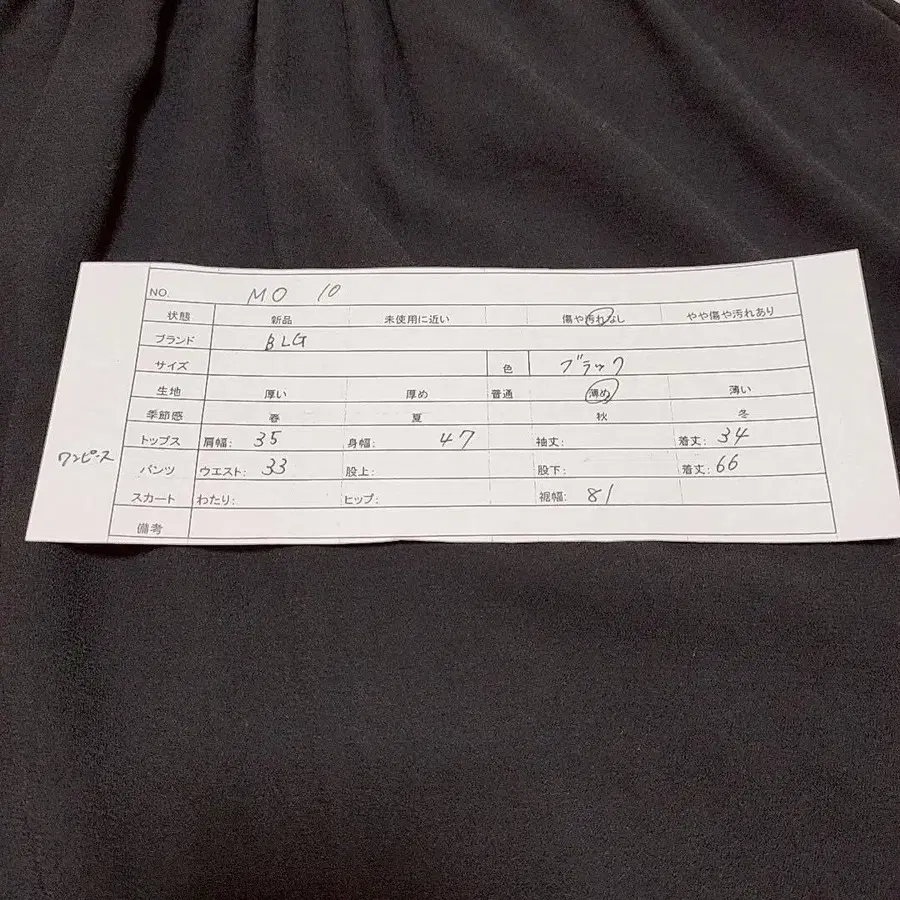 NO. MO 10
状態 新品 未使用に近い 傷や汚れなし やや傷や汚れあり
ブランド BLG
サイズ 色 ブラック
生地 厚い 厚め 普通 薄め 薄い
季節感 春 夏 秋 冬
トップス 肩幅: 35 身幅: 47 袖丈: 着丈: 34
ワンピース パンツ ウエスト: 33 股上: 股下: 着丈: 66
スカート わたり: ヒップ: 裾幅: 81
備考